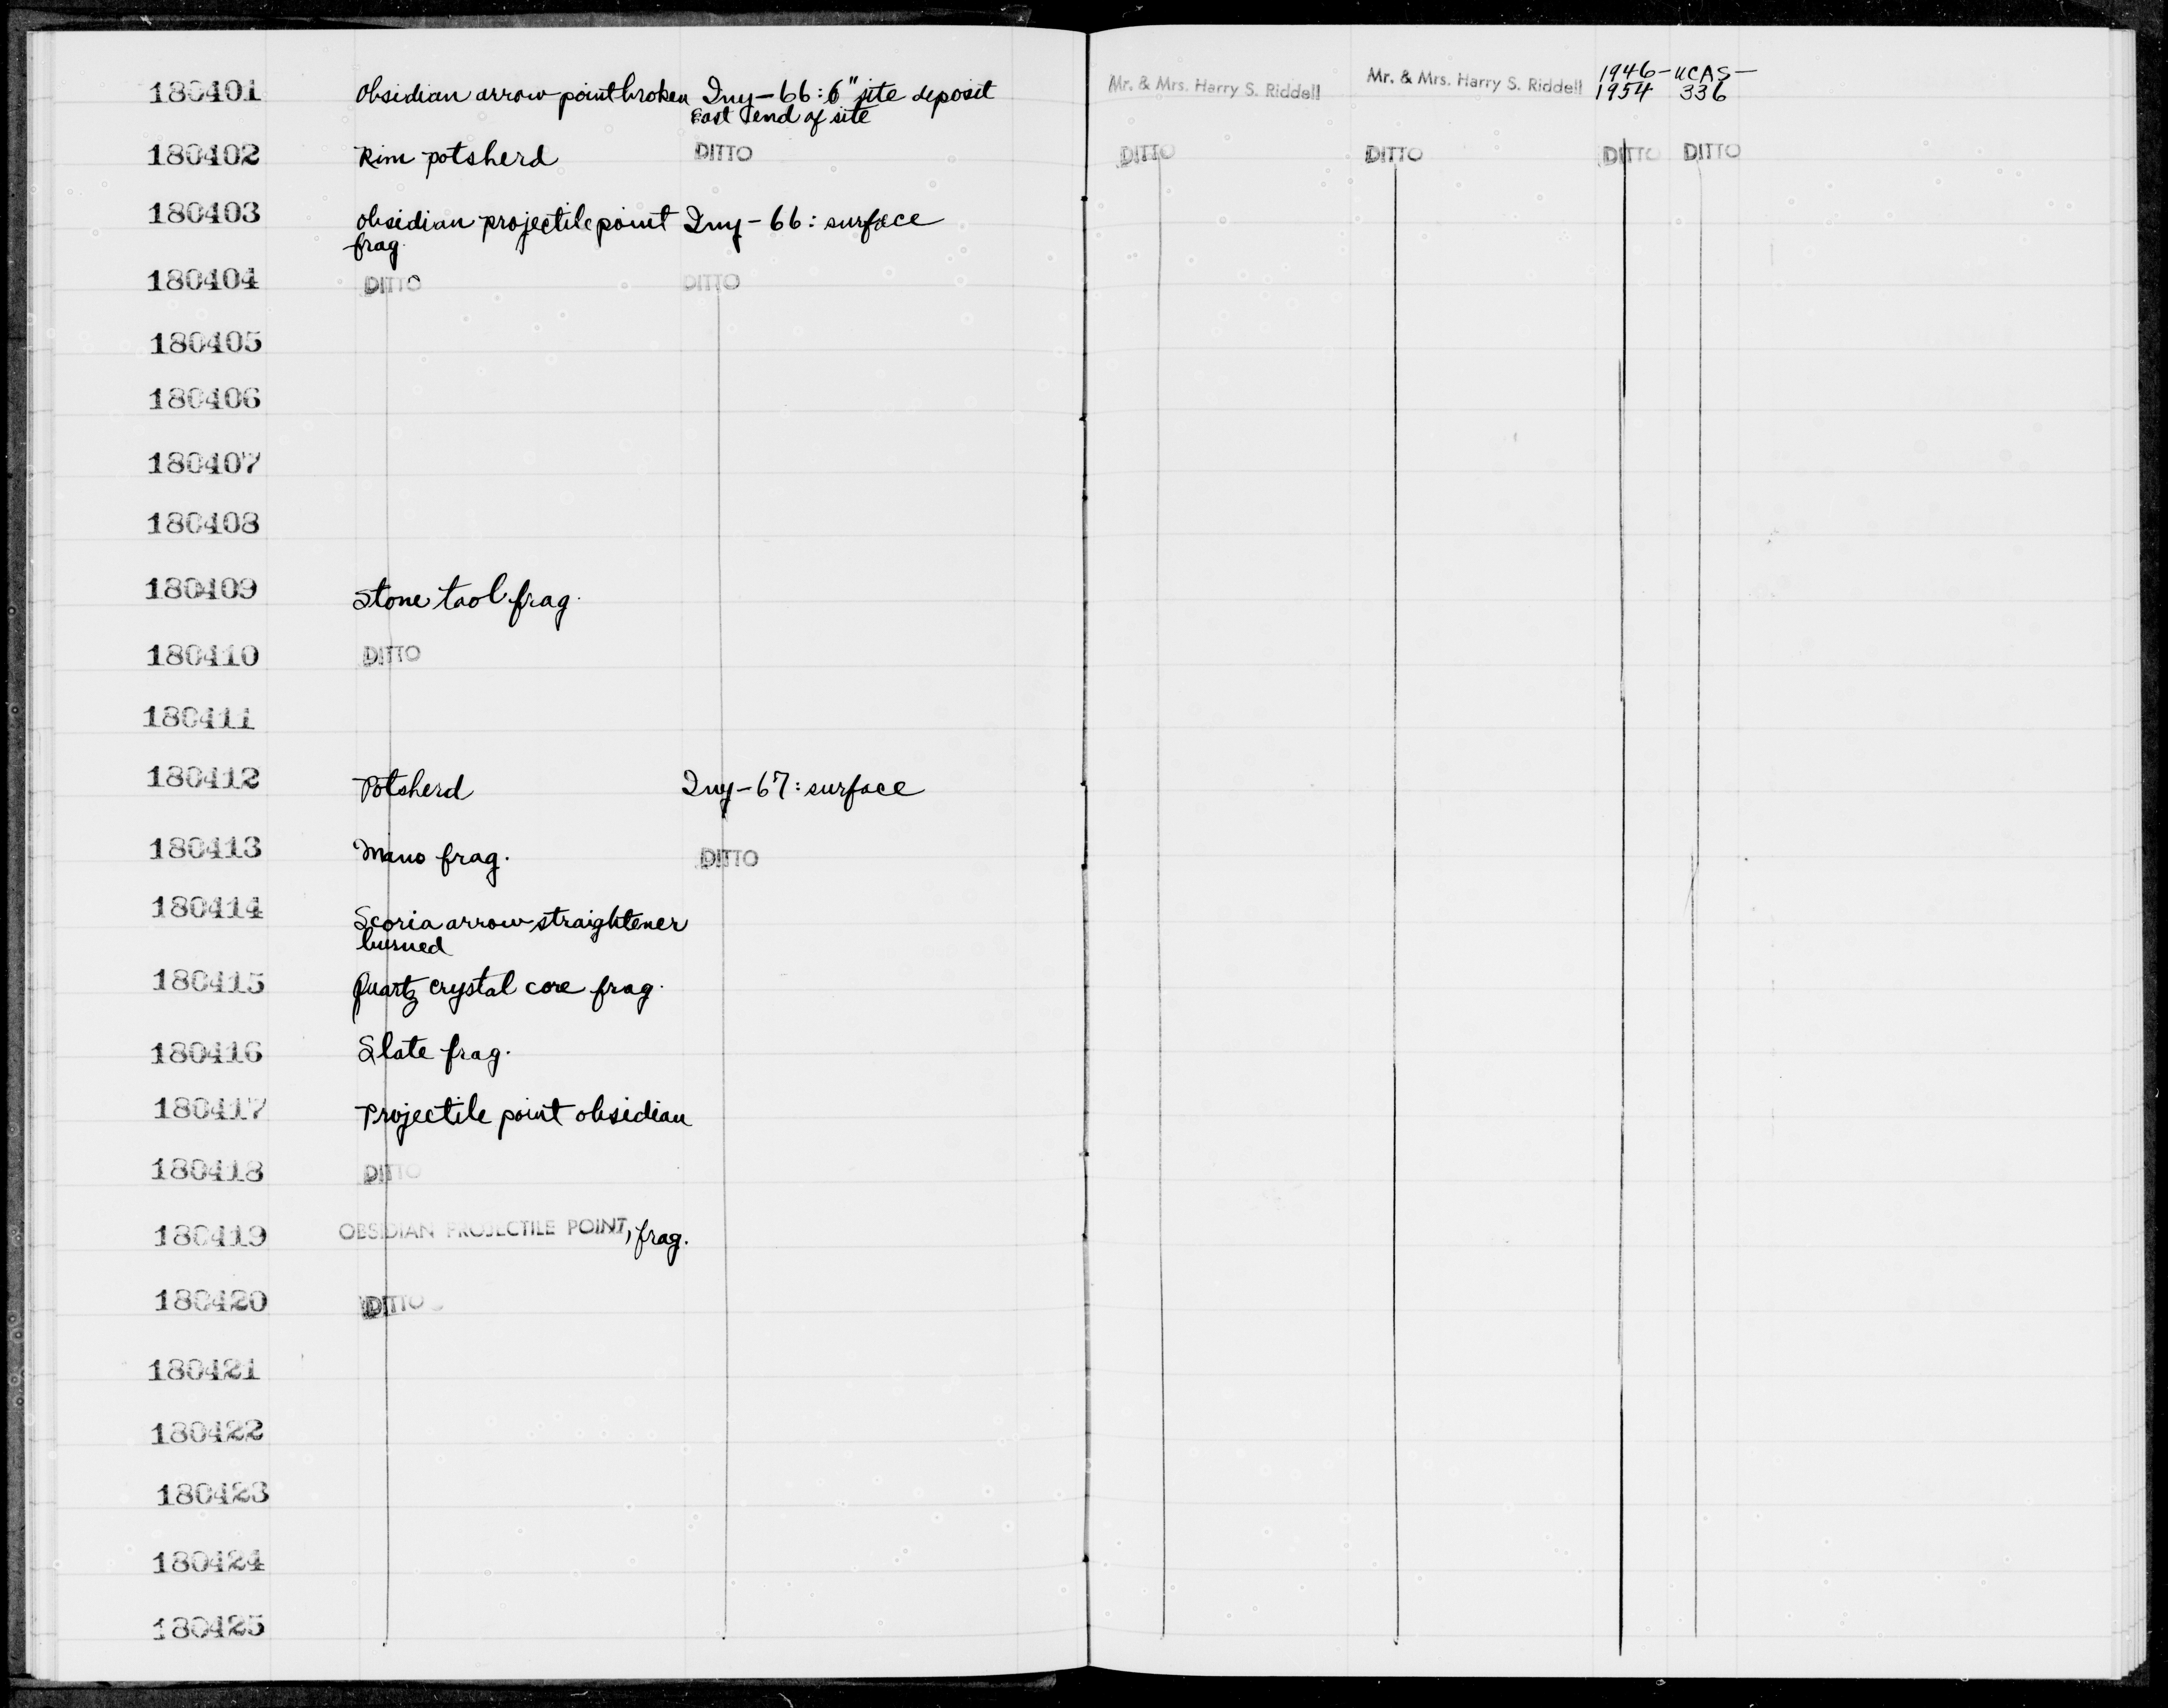 180401 Obsidian arrow point broken Iny-66: 6" site deposit Mr. & Mrs. Harry S. Riddell Mr. & Mrs. Harry S. Riddell 1946- UCAS-
East end of site 1954 336
180402 Rim potsherd DITTO DITTO DITTO DITTO DITTO
180403 Obsidian projectile point Iny-66: surface
frag.
180404 DITTO DITTO
180405
180406
180407
180408
180409 Stone tool frag.
180410 DITTO
180411
180412 Potsherd Iny-67: surface
180413 Mano frag. DITTO
180414 Scoria arrow straightener
burned
180415 Quartz crystal core frag.
180416 Slate frag.
180417 Projectile point obsidian
180418 DITTO
180419 OBSIDIAN PROJECTILE POINT, frag.
180420 DITTO
180421
180422
180423
180424
180425